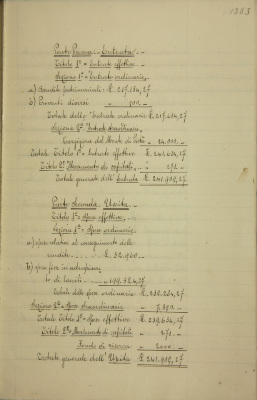 1883
Parte Prima - Entrata. -
Titolo 1° - Entrate effettive. -
Sezione 1ª - Entrate ordinarie. -
a) Rendite patrimoniali: £. 217.134,27
b) Proventi diversi " 500. -
Totale delle Entrate ordinarie £. 217.634,27
Sezione 2ª Entrate straordinarie.
del Monte di " 24.000. -
Totale Titolo 1° - Entrate effettive £. 241.634,27
Titolo 2° Movimento de capitali. - " 271. -
Totale generale dell'Entrata £. 241.905,27
Parte Seconda. Uscita. -
Titolo 1° - Spese effettive. -
Sezione 1ª - Spese ordinarie. -
a) spese relative al conseguimento delle
rendite £. 32.960. -
b) spese fisse in
to di
Totale delle spese ordinarie £. 232.284,27
Sezione 2ª - Spese straordinarie
Totale Titolo 1° - Spese effettive £. 239.634,27
Titolo 2° - Movimento di capitali " 271. -
Fondo di riserva " 2000. -
Totale generale dell'Uscita £. 241.905,27